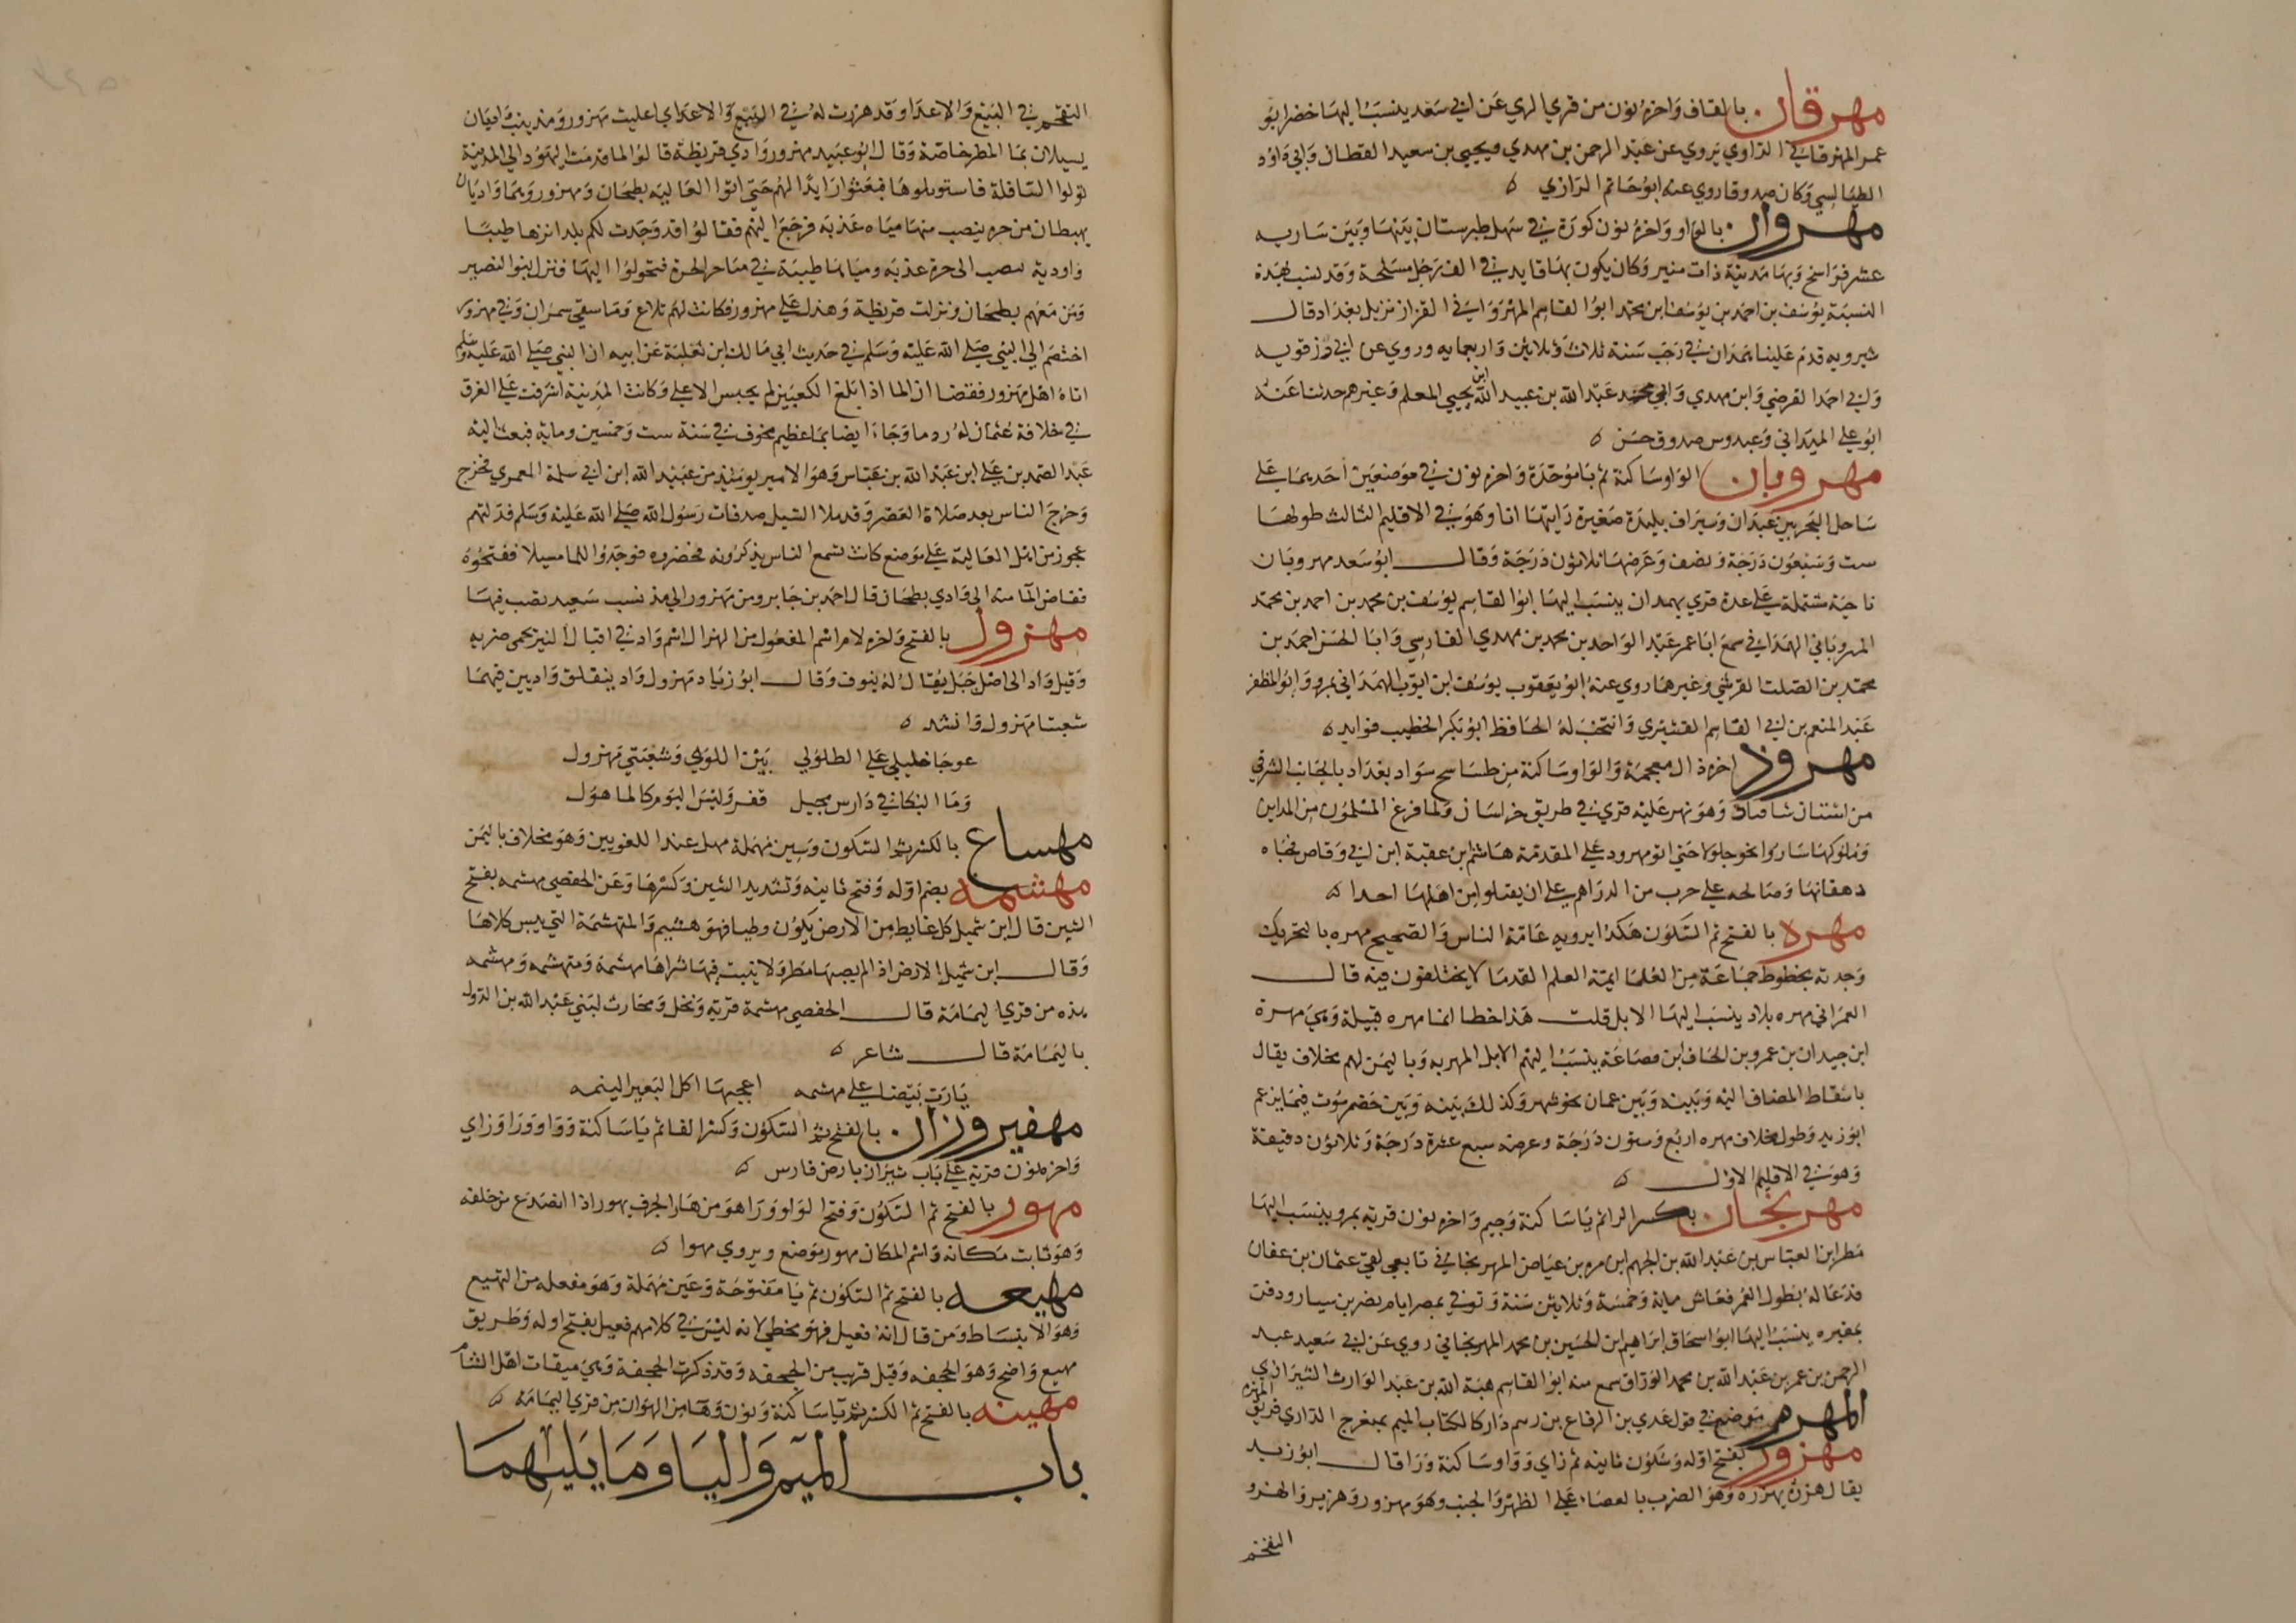 مهرقان بالقاف واخره نون من قري الري عن ابي سعد ينسب اليها خضر ابو
عمر المهرقاني الرازي يروي عن عبد الرحمن بن مهدي ويحيى بن سعيد القطان وابي داود
الطيالسي وكان صدوقا روي عنه ابو حاتم الرازي ه
مهروان بالواو واخره نون كورة في سهل طبرستان بينها وبين ساريه
عشر فراسخ وبها مدينة ذات منبر وكان يكون بها قايد في الف رجل مسلحة وقد نسب بهذة
النسبة يوسف بن احمد بن يوسف ابن محمد ابو القاسم المهرواني القزاز نزيل بغداد قال
شيرويه قدم علينا همدان في رجب سنة ثلاث وثلاثين واربعمايه وروي عن ابن رزقويه
وابي احمد الفرضي وابن مهدي وابي محمد عبد الله بن عبيد الله ابن يحيي المعلم وغيرهم حدثنا عنه
ابو علي الميداني وعبدوس صدوق حسن ه
مهروبان الواو ساكنة ثم با موحدة واخره نون في موضعين احديهما علي
ساحل البحر بين عبدان وسيراف بليدة صغيرة رايتها انا وهو في الاقليم الثالث طولها
ست وسبعون درجة ونصف وعرضها ثلاثون درجة وقال ابو سعد مهروبان
ناحية مشتملة علي عدة قري بهمدان ينسب اليها ابو القاسم يوسف بن محمد بن احمد بن محمد
المهروباني الهمداني سمع ابا عمر عبد الواحد بن محمد بن مهدي الفارسي وابا الحسن احمد بن
محمد بن الصلت القرشي وغيرهما روي عنه ابو يعقوب يوسف ابن ايوب الهمداني بمرو وابو المظفر
عبد المنعم بن ابي القاسم القشيري وانتخب له الحافظ ابو بكر الخطيب فوايد ه
مهروذ اخره ذال معجمة والواو ساكنة من طساسج سواد بغداد بالجانب الشرقي
من استان شاقباد وهو نهر عليه قري في طريق خراسان ولما فرغ المسلمون من المداين
وملوكها ساروا نحو جلولا حتي اتو مهرود علي المقدمة هاشم ابن عقبة ابن ابي وقاص فجاه
دهقانها وصالحه علي حرب من الدراهم علي ان يقتلوا من اهلها احدا ه
مهره بالفتح ثم السكون هكذا يرويه عامة الناس والصحيح مهره بالتحريك
وجدته بخطوط جماعة من العلما ايمة العلم القدما لا يختلفون فيه قال
العمراني مهره بلاد ينسب اليها الابل قلت هذا خطا انما مهره قبيلة وهي مهرة
ابن حيدان بن عمرو بن الحاف ابن قضاعة ينسب اليهم الابل المهريه وباليمن لهم مخلاف يقال
باسقاط المضاف اليه وبينه وبين عمان نحو شهر وكذلك بينه وبين حضرموت فيما يزعم
ابو زيد وطول مخلاف مهره اربع وستون درجة وعرضه سبع عشرة درجة وثلاثون دقيقة
وهو في الاقليم الاول ه
مهريجان بكسر الرا ثم يا ساكنة وجيم واخره نون قرية بمرو ينسب اليها
مطر ابن العباس بن عبد الله بن الجهم ابن مره بن عياض المهريجاني تابعي لقي عثمان بن عفان
فدعا له بطول العمر فعاش ماية وخمسة وثلاثين سنة وتوفي بمصر ايام نضر بن سيار ودفن
بمقبره ينسب اليها ابو اسحاق ابراهيم ابن الحسين بن محمد المهريجاني روي عن ابي سعيد عبد
الرحمن بن عمر بن عبد الله بن محمد الوراق سمع منه ابو القاسم هبة الله بن عبد الوارث الشيرازي
المهرم موضع في قول عدي بن الرقاع بن رسم دار كالكتاب الميم بمنعرج الداري فريق المهرم
مهزور بفتح اوله وسكون ثانيه ثم زاي وواو ساكنة ورا قال ابو زيد
يقال هزره يهزره وهو الضرب بالعصا علي الظهر والجنب وهو مهزور وهزير والهزو
التقحم
التقحم في البيع والاعداو قد هزرت له في البيع والاعداي اعليت مهزور ومذينب واديان
يسيلان بما المطر خاصة وقال ابو عبيد مهزور وادي قريظة قالوا لما قدمت اليهود الي المدينة
نولوا السافلة فاستوبلوها فبعثوا رايدا لهم حتي اتوا العاليه بطحان ومهزور وهما واديان
يهبطان من حره ينصب منها مياه عذبه فرجع اليهم فقالوا قد وجدت لكم بلدا نزها طيبا
واودية تنصب الي حرة عذبه ومياها طيبة في متاخر الحرة فتحولوا اليها فنزل بنوا النضير
ومن معهم بطحان ونزلت قريظة وهذل علي مهزور فكانت لهم تلاع وما سقي سمران وفي مهزور
اختصم الي النبي صلي الله عليه وسلم في حديث ابي مالك ابن ثعلبة عن ابيه ان النبي صلي الله عليه وسلم
اتاه اهل مهزور فقضا ان الما اذا بلغ الكعبين لم يحبس الاعلي وكانت المدينة اشرفت علي الغرق
في خلافة عثمان له ردما وجاء ايضا بما عظيم مخوف في سنة ست وخمسين ومايه فبعث اليه
عبد الصمد بن علي ابن عبد الله بن عباس وهو الامير يومئذ من عبيد الله ابن ابي سلمة العمري فخرج
وخرج الناس بعد صلاة العصر وقد ملا السيل صدقات رسول الله صلي الله عليه وسلم فدلتهم
عجوز من اهل العالية علي موضع كانت تسمع الناس يذكرونه فحضروه فوجدوا للما مسيلا ففتحوه
فغاض الما منه الي وادي بطحان قال احمد بن جابر ومن مهزور الي مذ نسب سعيد يصب فيها
مهزول بالفتح واخره لام اسم المفعول من الهزال اسم واد في اقبال النير بحمي ضريه
وقيل واد الي اصل جبل يقال له ينوف وقال ابو زياد مهزول واد ينقلق واديين فيهما
شعبتا مهزول وانشد ه
عوجا خليلي علي الطلولي بين اللوي وشعبتي مهزول
وما البكا في دارس محيل قفر وليس اليوم كالماهول
مهساع بالكسر ثم السكون وسين مهملة مهمل عند اللغويين وهو مخلاف باليمن
مهشمه بضم اوله وفتح ثانيه وتشديد الشين وكسرها وعن الحفصي مهشمه بفتح
الشين قال ابن شميل كل غايط من الارض يكون وطيا فهو هشيم والمتهشمة التي يبس كلاها
وقال ابن شميل الارض اذا لم يصبها مطر ولا نبت فيها تراها مهشمة ومتهشمه ومهشمه
هذه من قري اليمامة قال الحفصي مهشمة قرية ونخل ومحارث لبني عبد الله بن الدول
باليمامة قال شاعر ه
يارب بيضا علي مهشمه اعجبها اكل البعير الينمه
مهفيروزان بالفتح ثم السكون وكسر الفا ثم يا ساكنة وواو ورا وزاي
واخره نون قرية علي باب شيراز بارض فارس ه
مهور بالفتح ثم السكون وفتح الواو ورا هو من هار الجرف يهور اذا انصدع من خلفه
وهو ثابت مكانه واسم المكان مهور موضع ويروي مهوا ه
مهيعه بالفتح ثم السكون ثم يا مفتوحة وعين مهملة وهو مفعله من التهيع
وهو الانبساط ومن قال انه فعيل فهو مخطي لانه ليس في كلامهم فعيل بفتح اوله وطريق
مهيع واضح وهو الجحفه وقيل قريب من الجحفه وقد ذكرت الجحفة وهي ميقات اهل الشام
مهينه بالفتح ثم الكسر ثم يا ساكنة ونون وها من الهوان من قري اليمامة ه
باب الميم واليا وما يليهما